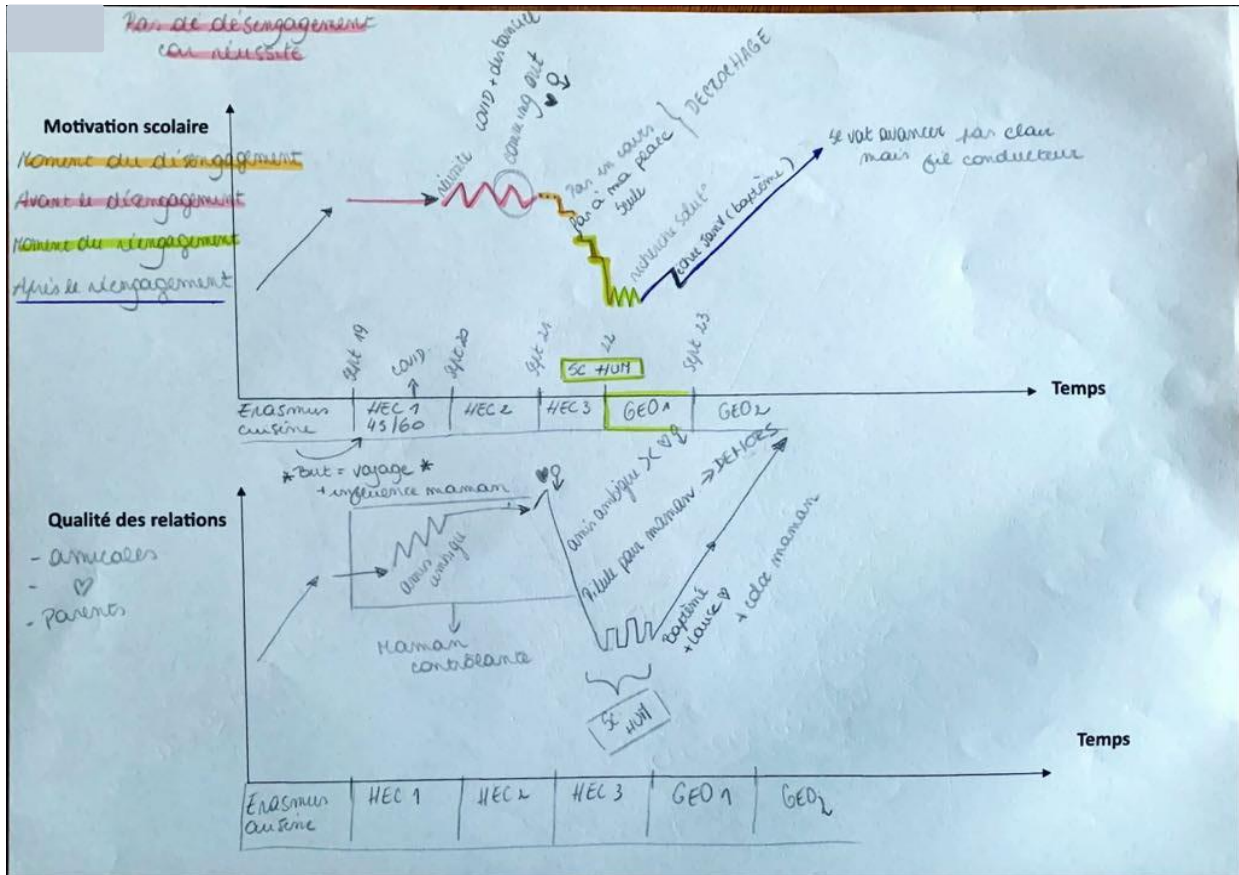 Pas de désengagement
car réussite
Motivation scolaire
Moment du désengagement
Avant le désengagement
Moment du réengagement
Après le réengagement
réussite
COVID + distanciel
coming out
♥ ♀
Pas en cours
pas à ma place
seule
DECROCHAGE
recherche solut°
échec janv (baptême)
se voit avancer pas clair
mais fil conducteur
Sept 19
COVID
Sept 20
Sept 21
22
Sept 23
SC HUM
Temps
Erasmus
cuisine
HEC 1
45/60
HEC 2
HEC 3
GEO 1
GEO 2
*But = voyage*
+ influence maman
Qualité des relations
- amicales
- ♡
- Parents
amis
ambigu
♥ ♀
Maman
contrôlante
amis ambigu >< ♡ ♀
Pilule pour maman → DEHORS
Baptême
+ cause ♡
+ coloc maman
SC
HUM
Temps
Erasmus
cuisine
HEC 1
HEC 2
HEC 3
GEO 1
GEO 2